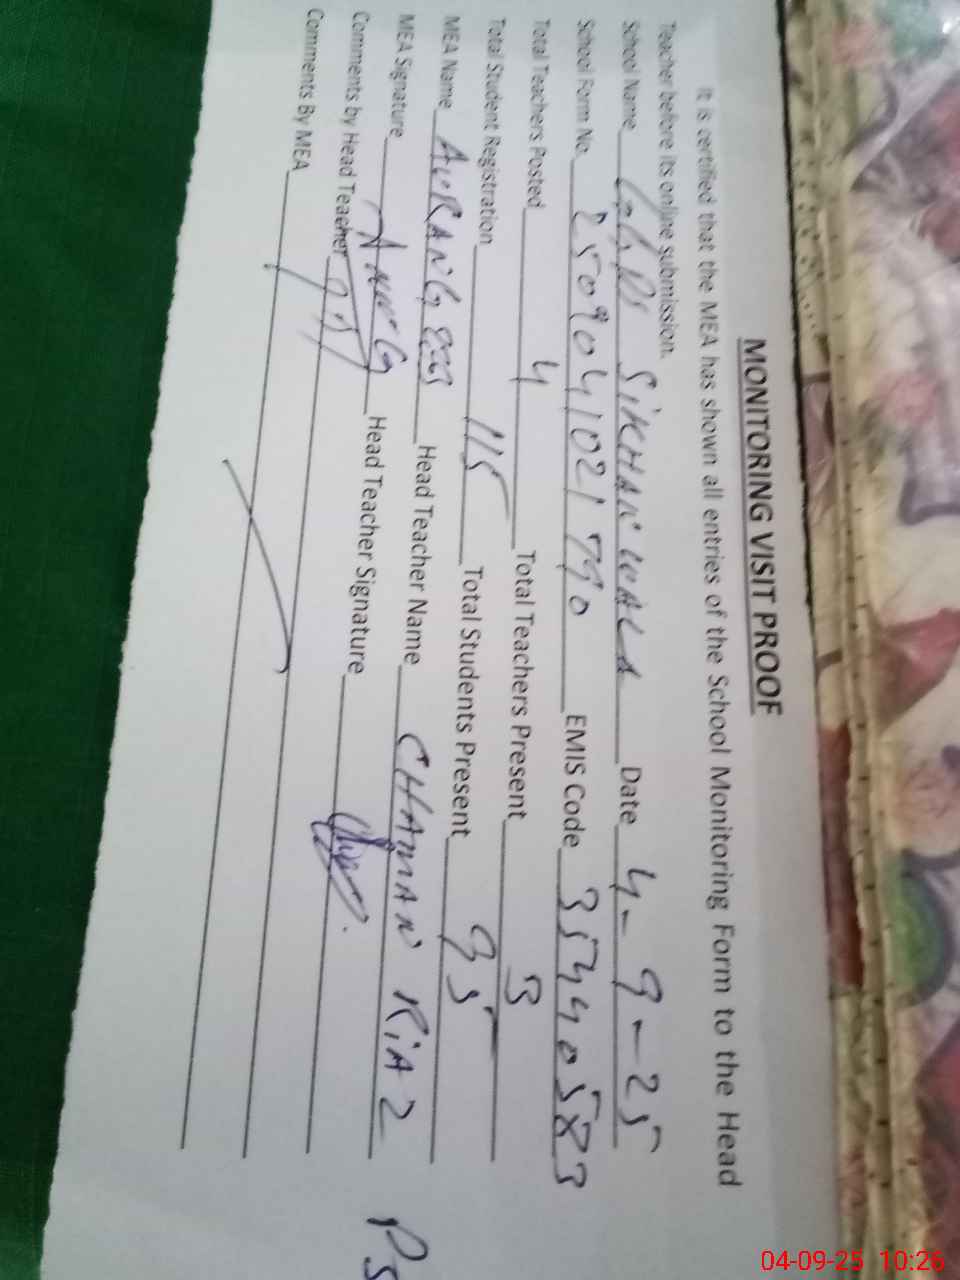 MONITORING VISIT PROOF
It is certified that the MEA has shown all entries of the School Monitoring Form to the Head
Teacher before its online submission.
School Name SiKHAN WALA Date 4-9-25
School Form No. 2509041021790 EMIS Code 35440583
Total Teachers Posted 4 Total Teachers Present 3
Total Student Registration 115 Total Students Present 95
MEA Name AURANG ZEB Head Teacher Name CHAMAN RiAZ
MEA Signature Head Teacher Signature
Comments by Head Teacher
Comments By MEA
04-09-25 10:26